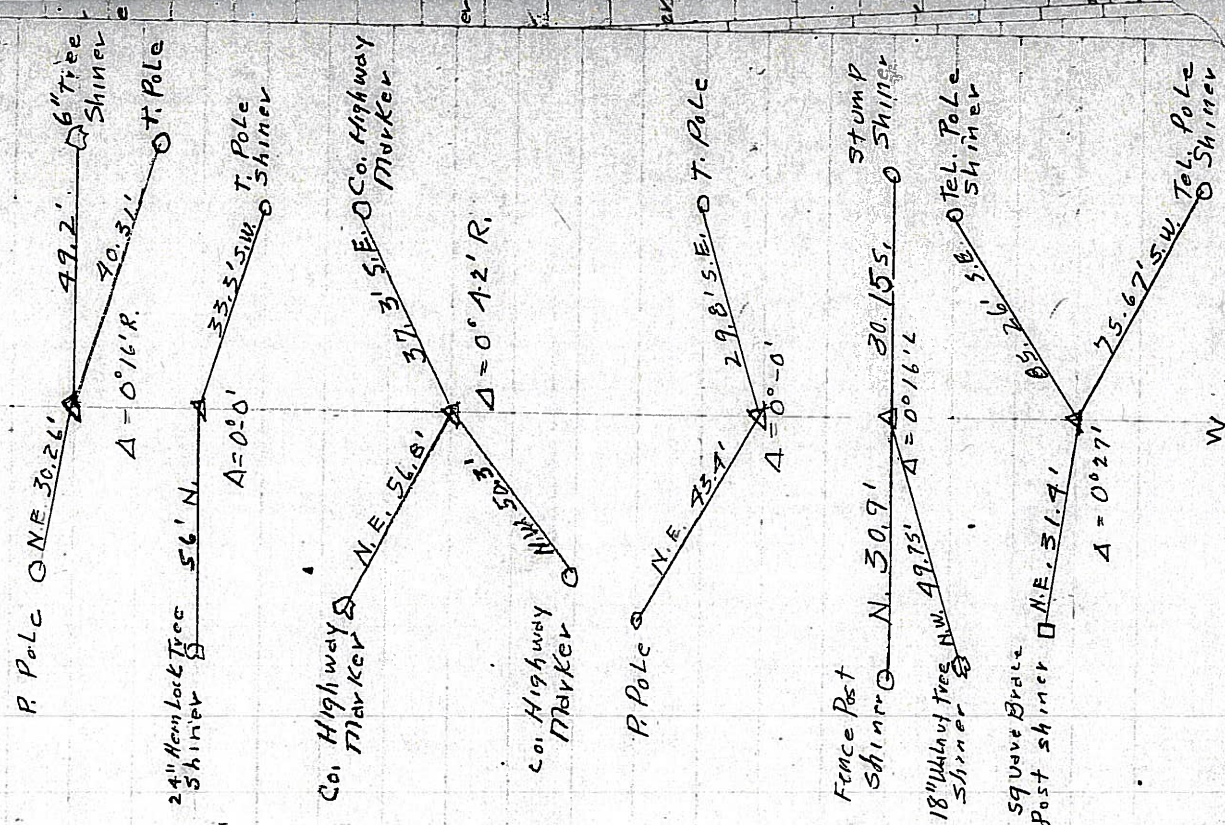 P. Pole
N.E. 30.26'
49.2'
6" Tree
Shiner
40.31'
T. Pole
Δ = 0°16' R.
24" Hemlock Tree
Shiner
56' N.
33.5' S.W.
T. Pole
Shiner
Δ = 0°-0'
Co. Highway
Marker
N.E. 56.8'
37.3' S.E.
Co. Highway
Marker
Δ = 0° 42' R.
N.W. 50.3'
Co. Highway
Marker
P. Pole
N.E. 43.4'
29.8' S.E.
T. Pole
Δ = 0°-0'
Fence Post
Shiner
N. 30.9'
30.15 S.
Stump
Shiner
Δ = 0°16' L
18" Walnut Tree
Shiner
N.W. 49.75'
Square Brace
Post Shiner
N.E. 31.4'
85.26' S.E.
Tel. Pole
Shiner
75.67' S.W.
Tel. Pole
Shiner
Δ = 0°27'
W